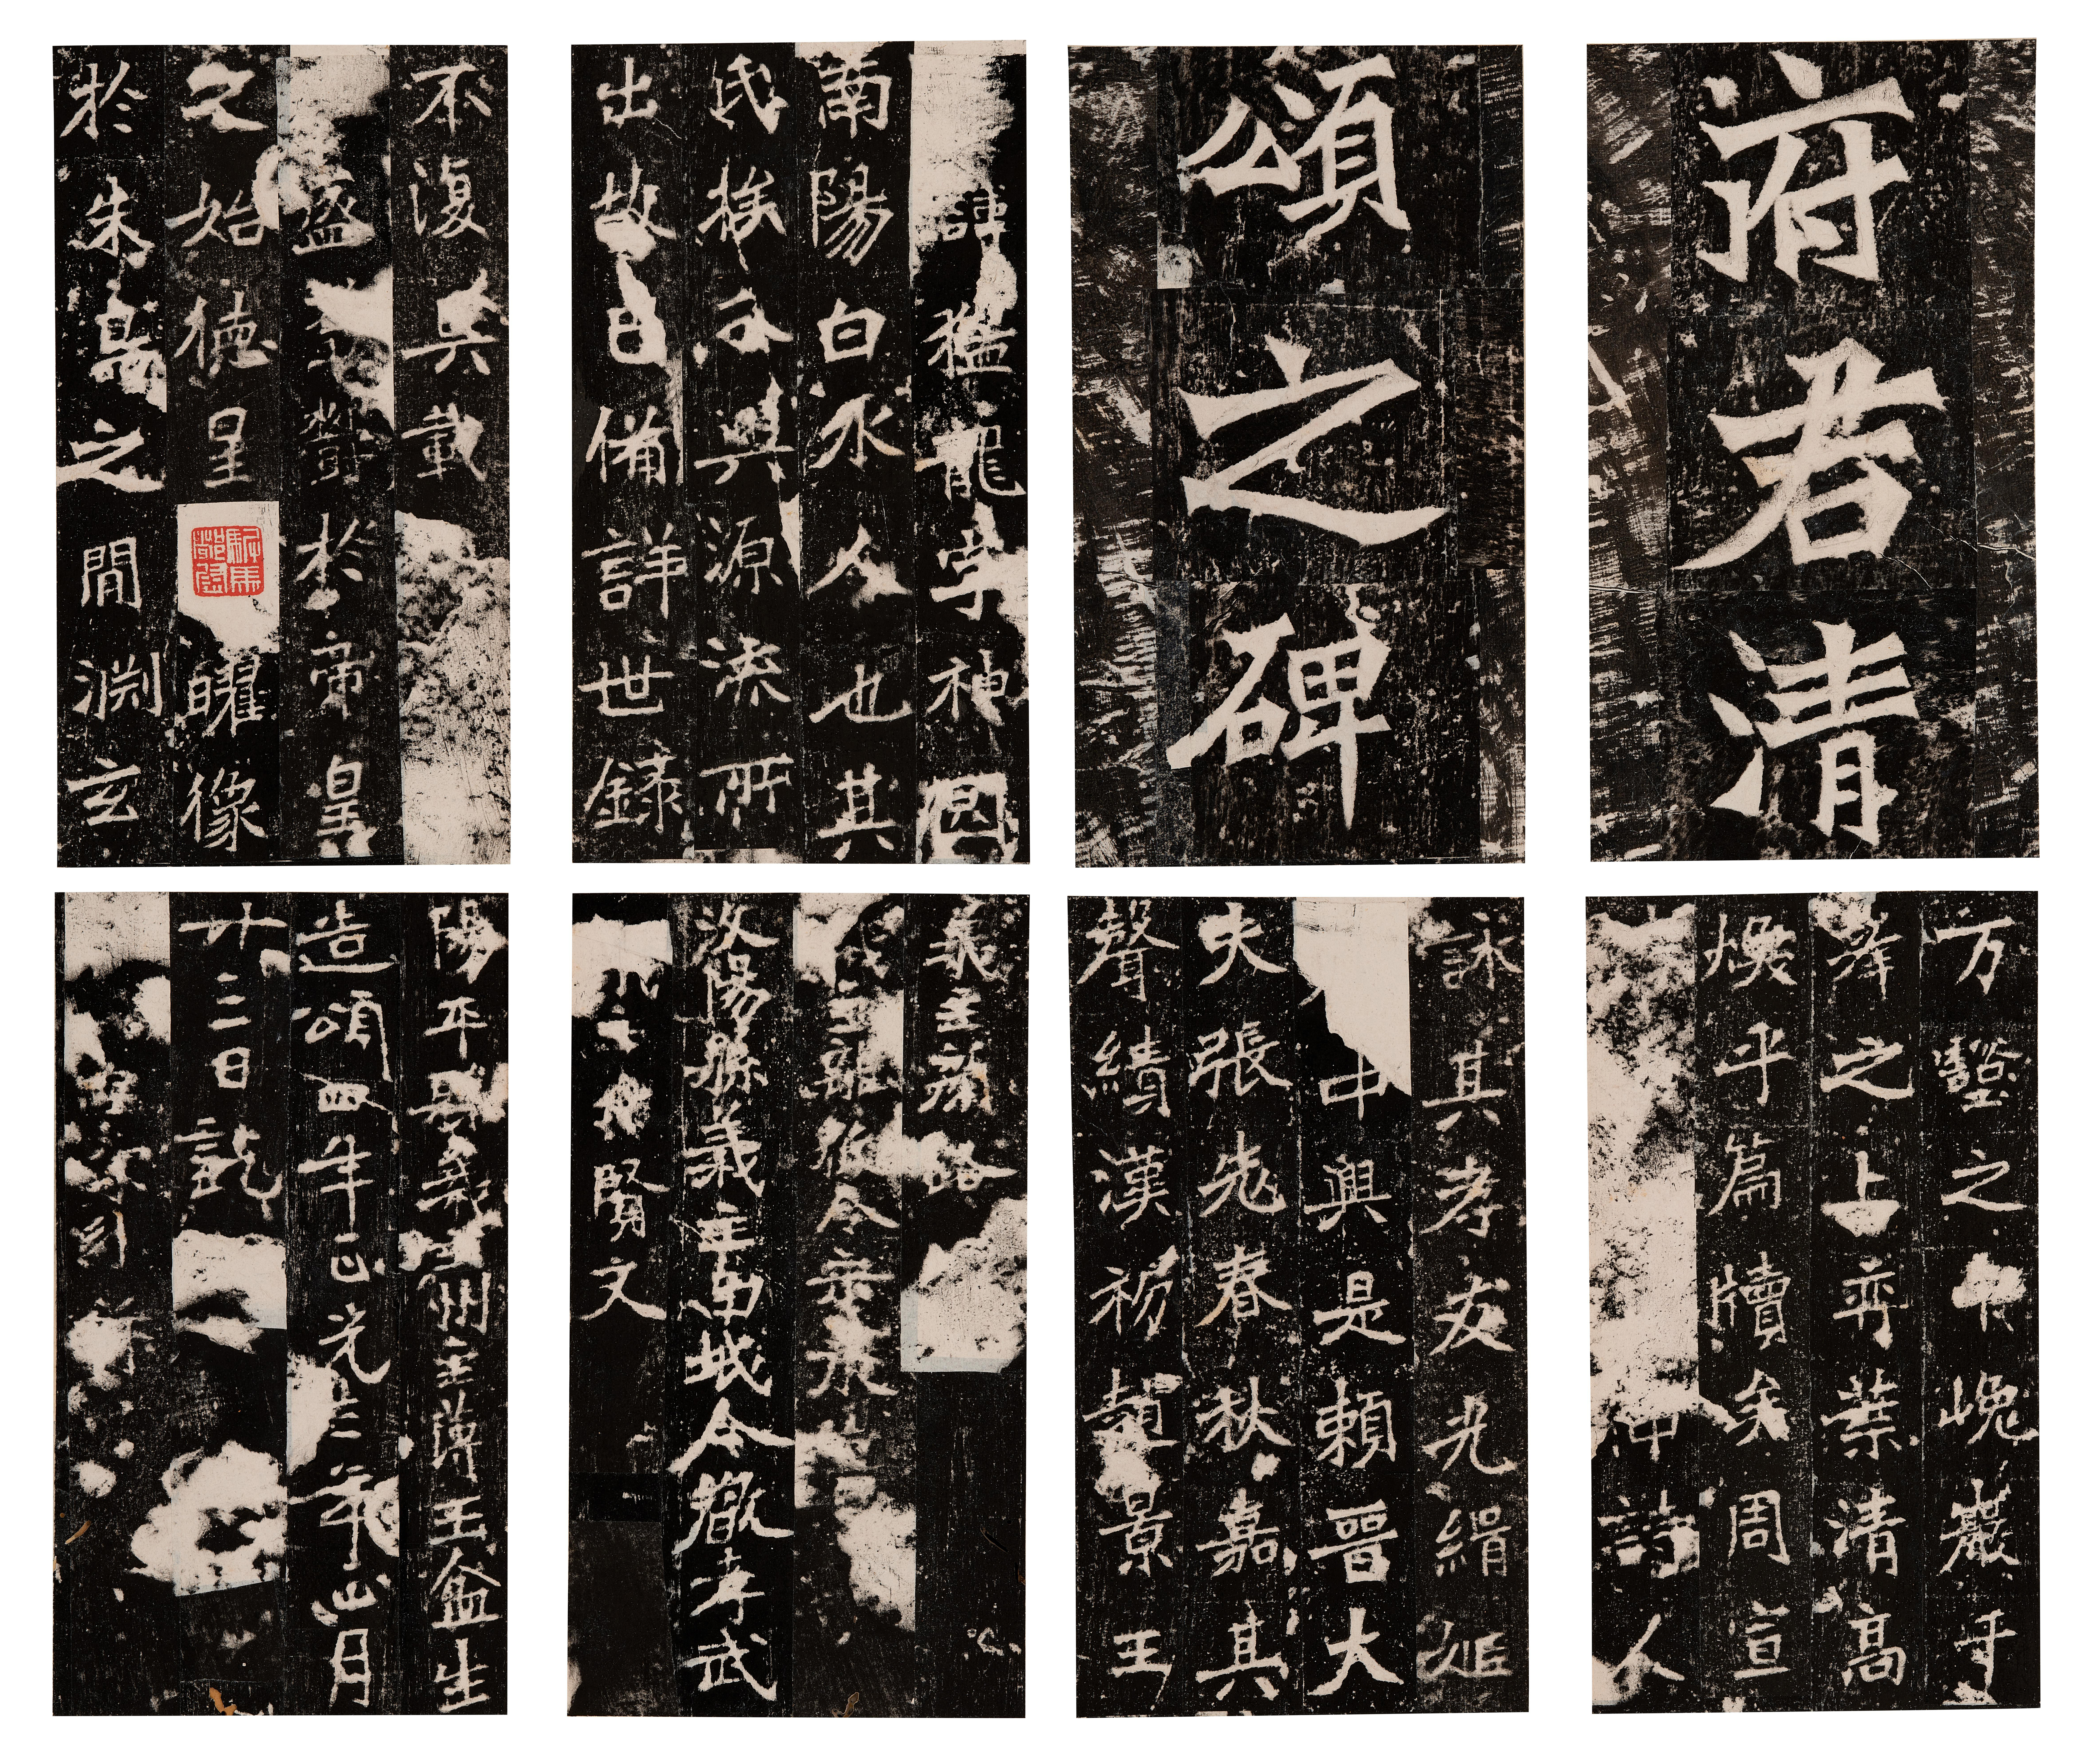 府君清
頌之碑
諱猛龍字神囧
南陽白水人也其
氏族分興源流所
出故已備詳世錄
不復具載
盛鬱於帝皇
之始德星曜像
於朱鳥之間淵玄
万壑之中嵬巖千
峯之上弈葉清高
煥乎篇牘矣周宣
仲詩人
詠其孝友光緝姬
中興是賴晉大
夫張老春秋嘉其
聲績漢初趙景王
義主
義主離狐令宋承
汶陽縣義主南城令嚴孝武
賢文
陽平縣義主州主簿王盆生
造頌四年正光三年正月
廿三日訖